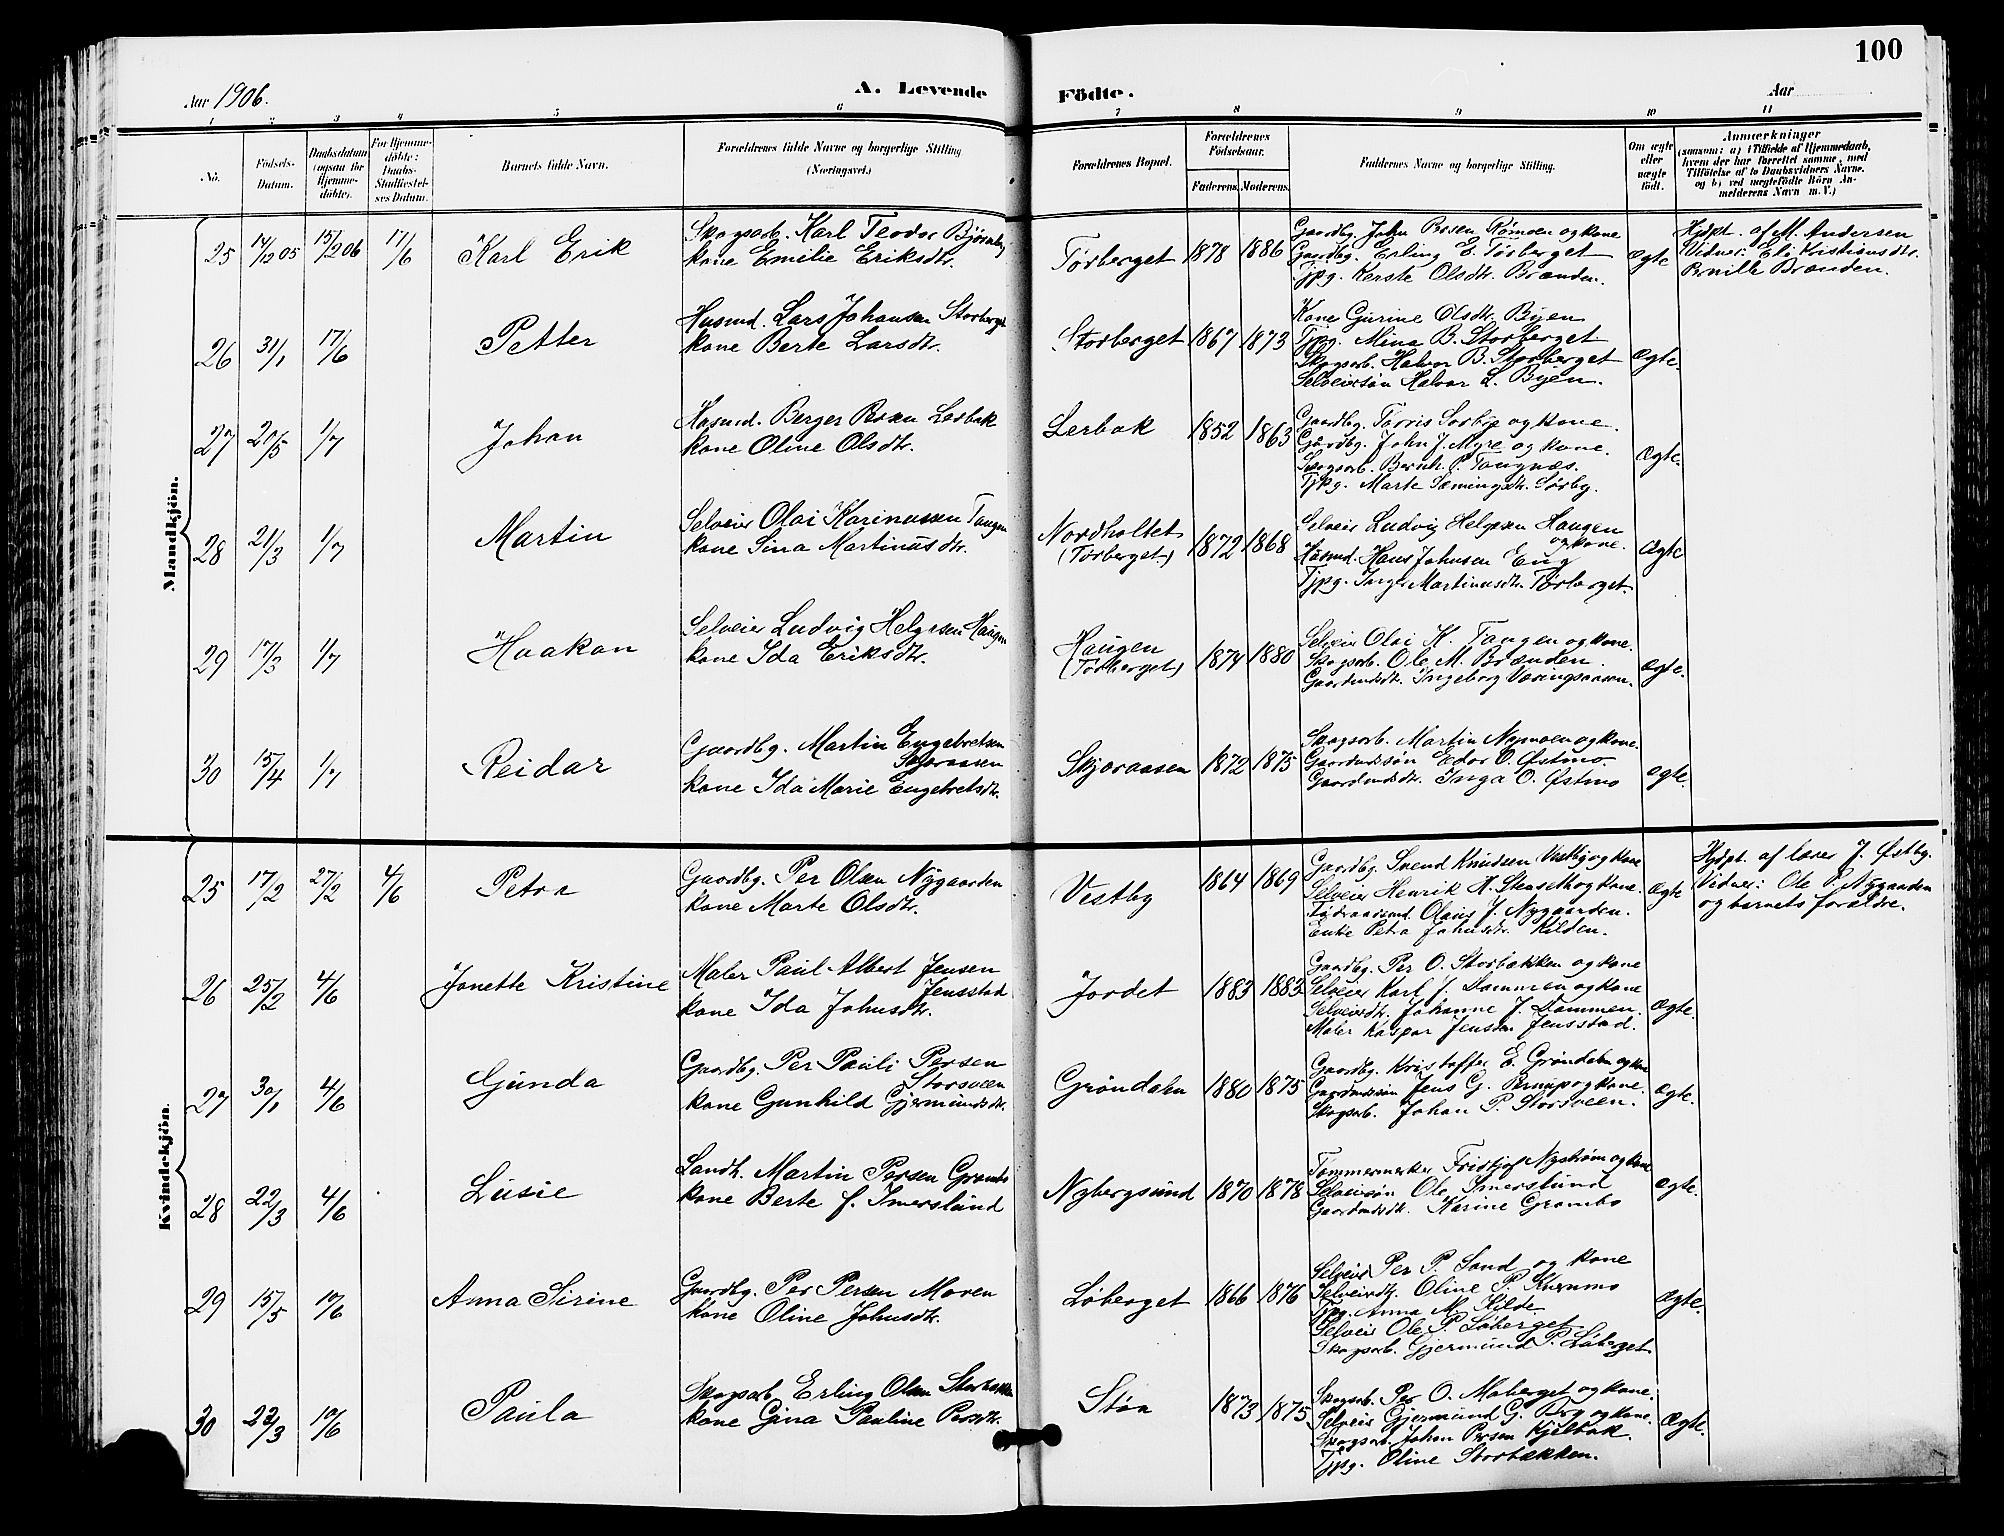 100
Aar 1906.
A. Levende
Födte.
Aar
1 2 3 4 5 6 7 8 9 10 11
No.
Födsels-Datum.
Daabsdatum (ogsaa for Hjemme-döbte).
For Hjemme-döbte: Daabs-Stadfæstel-ses Datum.
Barnets fulde Navn.
Forældrenes fulde Navne og borgerlige Stilling (Næringsvei.)
Forældrenes Bopæl.
Forældrenes Födselsaar.
Faderens. Moderens.
Faddernes Navne og borgerlige Stilling.
Om ægte eller uægte födt.
Anmærkninger
(saasom: a) i Tilfælde af Hjemmedaab,
hvem der har forrettet samme, med
Tilföielse af to Daabsvidners Navne.
og b) ved uægtefödte Börn An-
melderens Navn m. V.)
Mandkjön.
25 14/12 05 15/2 06 17/6 Karl Erik
Skogsarb. Karl Teodor Bjørnby
kone Emelie Eriksdtr.
Tørberget 1878 1886
Gaardbg. John Rømoen og kone
Gaardbg. Erling E. Tørberget
Tjpg. Kerste Olsdtr. Brænden.
Ægte
Hjdpt. af M. Andersen
Vidner: Eli Kristiansdtr.
Pernille Brænden.
26 31/1 17/6 Petter
Husmd. Lars Johansen Storberget
kone Berte Larsdtr.
Storberget 1867 1873
Kone Gurine Olsdtr. Byen
Tjpg. Mina B. Storberget
Skogsarb. Halvor B. Storberget
Selveiersøn Halvor L. Byen.
Ægte.
27 20/5 1/7 Johan
Husmd. Berger Persen Lerbak
kone Oline Olsdtr.
Lerbak 1852 1863
Gaardbg. Torris Sørby og kone.
Gaardbg. John J. Myre og kone.
Skogsarb. Bernh. P. Tangnæs.
Tjpg. Marte Sæmingsdtr. Sørby.
Ægte.
28 21/3 1/7 Martin
Selveier Olai Karinussen Tangen
kone Sina Martinusdtr.
Nordholtet
(Tørberget.) 1872 1868
Selveier Ludvig Helgesen Haugen
og kone.
Husmd. Hans Johnsen Eng
Tjpg. Inger Martinusdtr. Tørberget.
Ægte
29 17/3 1/7 Haakon
Selveier Ludvig Helgesen Haugen
kone Ida Eriksdtr.
Haugen
(Tørberget) 1874 1880
Selveier Olai K. Tangen og kone.
Skogsarb. Ole M. Brænden.
Gaardmdsdtr. Ingeborg Væringsaasen.
Ægte.
30 15/4 1/7 Reidar
Gaardbg. Martin Engebretsen
Skjæraasen
kone Ida Marie Engebretsdtr.
Skjæraasen 1872 1875
Skogsarb. Martin Nymoen og kone.
Gaardmdssøn Edor O. Østmo
Gaardmdsdtr. Inga O. Østmo
Ægte.
Kvindekjön.
25 17/2 27/2 4/6 Petra
Gaardbg. Per Olsen Nygaarden
kone Marte Olsdtr.
Vestby 1864 1869
Gaardbg. Svend Knudsen Vestby og kone
Selveier Henrik H. Stenseth og kone.
Føderaadsmd. Olaus J. Nygaarden.
Enke Petra Johnsdtr. Kilden.
Ægte
Hjdpt. af lærer J. Østby.
Vidner: Ole P. Nygaarden
og barnets forældre.
26 25/2 4/6 Jonette Kristine
Maler Paul Albert Jensen
Jensstad
kone Ida Johnsdtr.
Jordet 1883 1883
Gaardbg. Per O. Storbækken og kone
Selveier Karl J. Dammen og kone
Selveierdtr. Johanne J. Dammen.
Maler Kaspar Jensen Jensstad.
Ægte.
27 30/1 4/6 Gunda
Gaardbg. Per Pauli Persen
Storsveen
kone Gunhild Gjermundsdtr.
Grøndalen 1880 1875
Gaardbg. Kristoffer E. Grøndalen og kone
Gaardmdssøn Jens G. Bernup og kone.
Skogsarb. Johan P. Storsveen.
Ægte.
28 22/3 4/6 Lusie
Landh. Martin Persen Grambo
kone Berte f. Imerslund
Nybergsund 1870 1878
Tømmermerker Fridtjof Nystrøm og kone
Selveiersøn Ole Imerslund
Gaardmdsdtr. Karine Grambo
Ægte.
29 15/5 10/6 Anna Sirine
Gaardbg. Per Persen Moren
kone Oline Johnsdtr.
Løberget 1866 1876
Selveier Per P. Sand og kone
Selveierdtr. Oline P. Kvernmo
Tjpg. Anna M. Kilde
Selveier Ole P. Løberget
Skogsarb. Gjermund P. Løberget
Ægte.
30 22/3 10/6 Paula
Skogsarb. Erling Olsen Storbækken
kone Gina Pauline Persdtr.
Støa 1873 1875
Skogsarb. Per O. Moberget og kone.
Selveier Gjermund G. Berg og kone.
Skogsarb. Johan Persen Kjelbak.
Tjpg. Oline Storbækken.
Ægte.